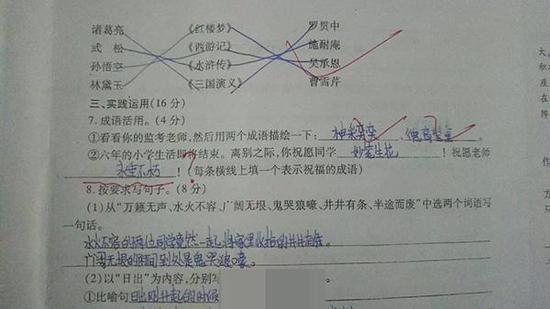 诸葛亮 《红楼梦》 罗贯中
武松 《西游记》 施耐庵
孙悟空 《水浒传》 吴承恩
林黛玉 《三国演义》 曹雪芹
三、实践运用(16分)
7.成语活用。(4分)
①看看你的监考老师,然后用两个成语描绘一下: 神采奕奕、
②六年的小学生活即将结束。离别之际,你祝愿同学 妙笔生花 !祝愿老师
永垂不朽 !(每条横线上填一个表示祝福的成语)
8.按要求写句子。(8分)
(1)从“万籁无声、水火不容、广阔无垠、鬼哭狼嚎、井井有条、半途而废”中选两个词语写
一句话。
水火不容的两位同学竟然一起 家里收拾的井井有条。
广阔无垠的 到处是鬼哭狼嚎。
(2)以“日出”为内容,分别
①比喻句 日出刚升起的时候
大
积
座
在
阵